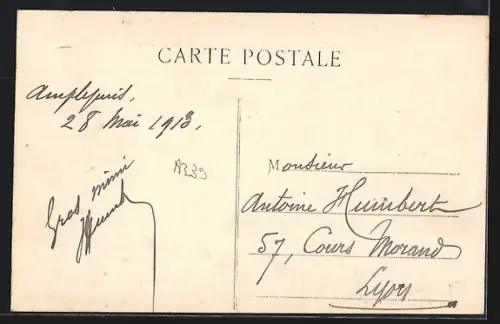 CARTE POSTALE
Amplepuis,
28 Mai 1913.
Gros mimi
A339
Monsieur
Antoine Humbert
57, Cours Morand
Lyon